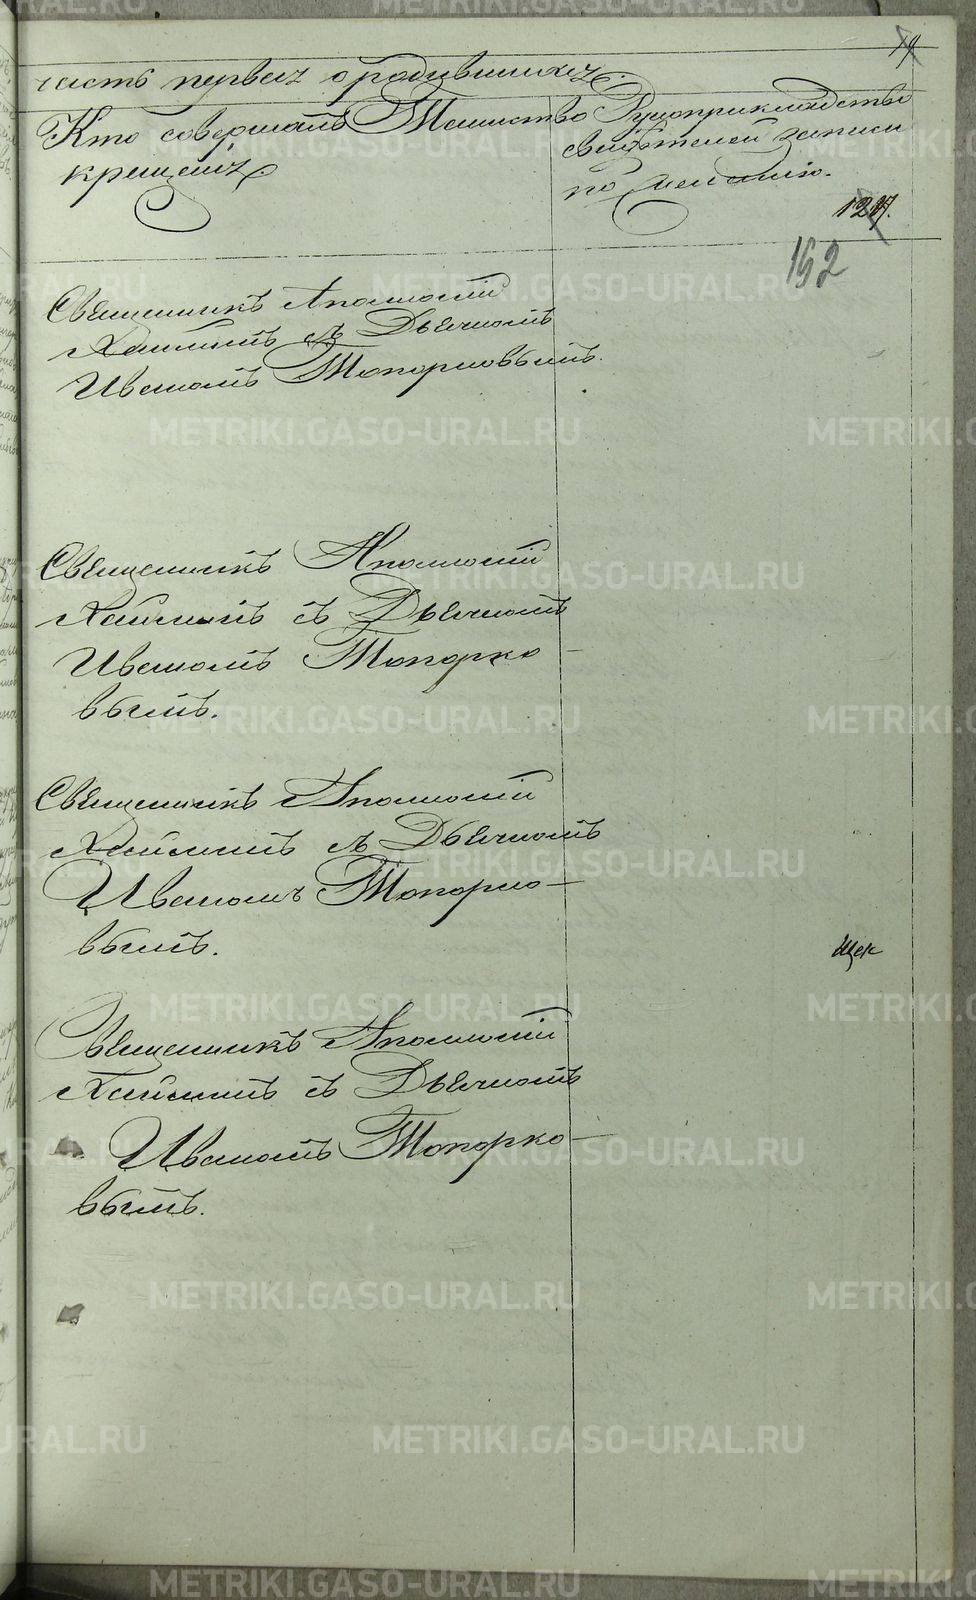 19
часть первая о родившихся.
Кто совершалъ Таинство
крещенія.
Рукоприкладство
свидѣтелей записи
по желанію.
127.
192
Священникъ Аполлоній
Хайминъ съ Дьячкомъ
Иваномъ Топорковымъ.
Священникъ Аполлоній
Хайминъ съ Дьячкомъ
Иваномъ Топорко
вымъ.
Священникъ Аполлоній
Хайминъ съ Дьячкомъ
Иваномъ Топорко–
вымъ.
Священникъ Аполлоній
Хайминъ съ Дьячкомъ
Иваномъ Топорко–
вымъ.
METRIKI.GASO-URAL.RU